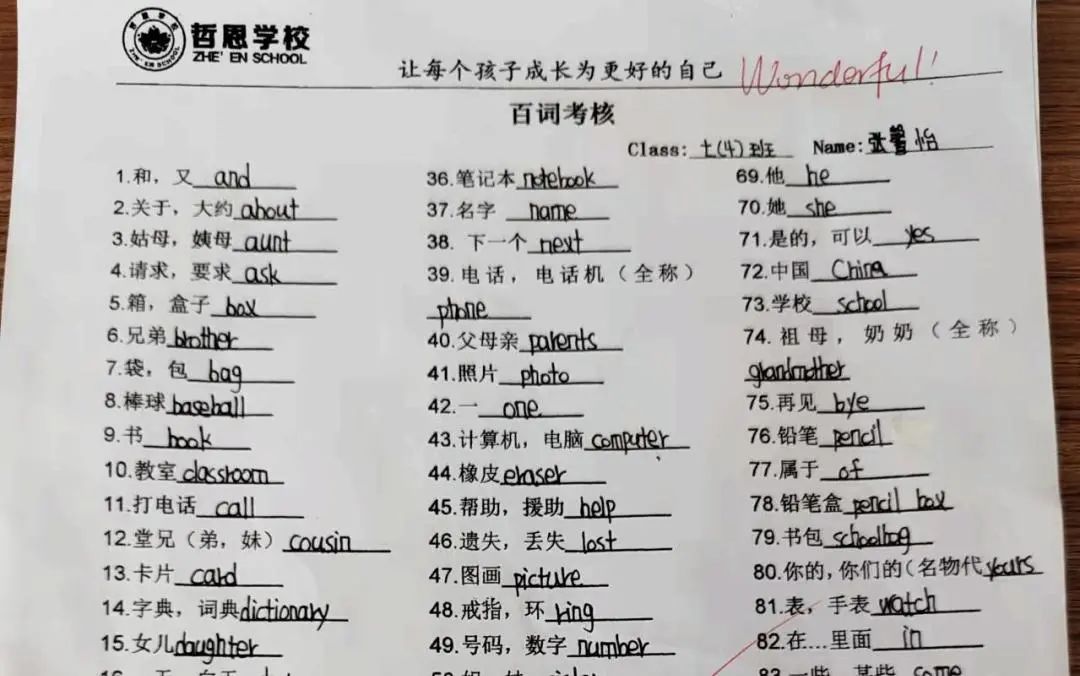 哲恩学校
ZHE' EN SCHOOL
让每个孩子成长为更好的自己 Wonderful!
百词考核
Class: 七(4)班 Name: 张馨怡
1.和，又 and
2.关于，大约 about
3.姑母，姨母 aunt
4.请求，要求 ask
5.箱，盒子 box
6.兄弟 brother
7.袋，包 bag
8.棒球 baseball
9.书 book
10.教室 classroom
11.打电话 call
12.堂兄（弟，妹）cousin
13.卡片 card
14.字典，词典 dictionary
15.女儿 daughter
36.笔记本 notebook
37.名字 name
38. 下一个 next
39.电话，电话机（全称）
phone
40.父母亲 parents
41.照片 photo
42.一 one
43.计算机，电脑 computer
44.橡皮 eraser
45.帮助，援助 help
46.遗失，丢失 lost
47.图画 picture
48.戒指，环 ring
49.号码，数字 number
69.他 he
70.她 she
71.是的，可以 yes
72.中国 China
73.学校 school
74.祖母，奶奶（全称）
grandmother
75.再见 bye
76.铅笔 pencil
77.属于 of
78.铅笔盒 pencil box
79.书包 schoolbag
80.你的，你们的（名物代 yours
81.表，手表 watch
82.在....里面 in
83.一些，某些 some